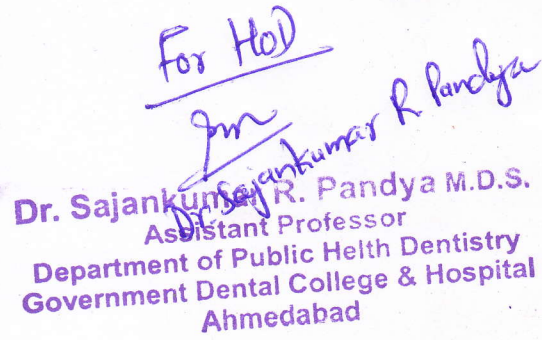 For HOD
Dr. Sajankumar R Pandya
Dr. Sajankumar R. Pandya M.D.S.
Assistant Professor
Department of Public Helth Dentistry
Government Dental College & Hospital
Ahmedabad